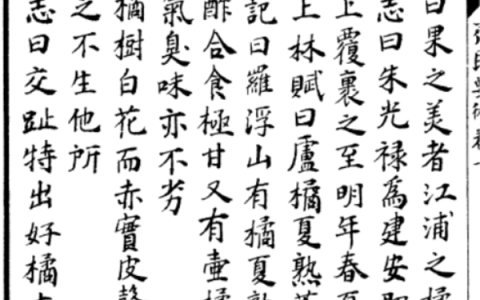 曰果之美者江浦之橘
志曰朱光禄爲建安郡
上覆裹之至明年春夏
上林賦曰廬橘夏熟
記曰羅浮山有橘夏熟
酢合食極甘又有壷橘
氣臭味亦不劣
橘樹白花而赤實皮馨
之不生他所
志曰交趾特出好橘